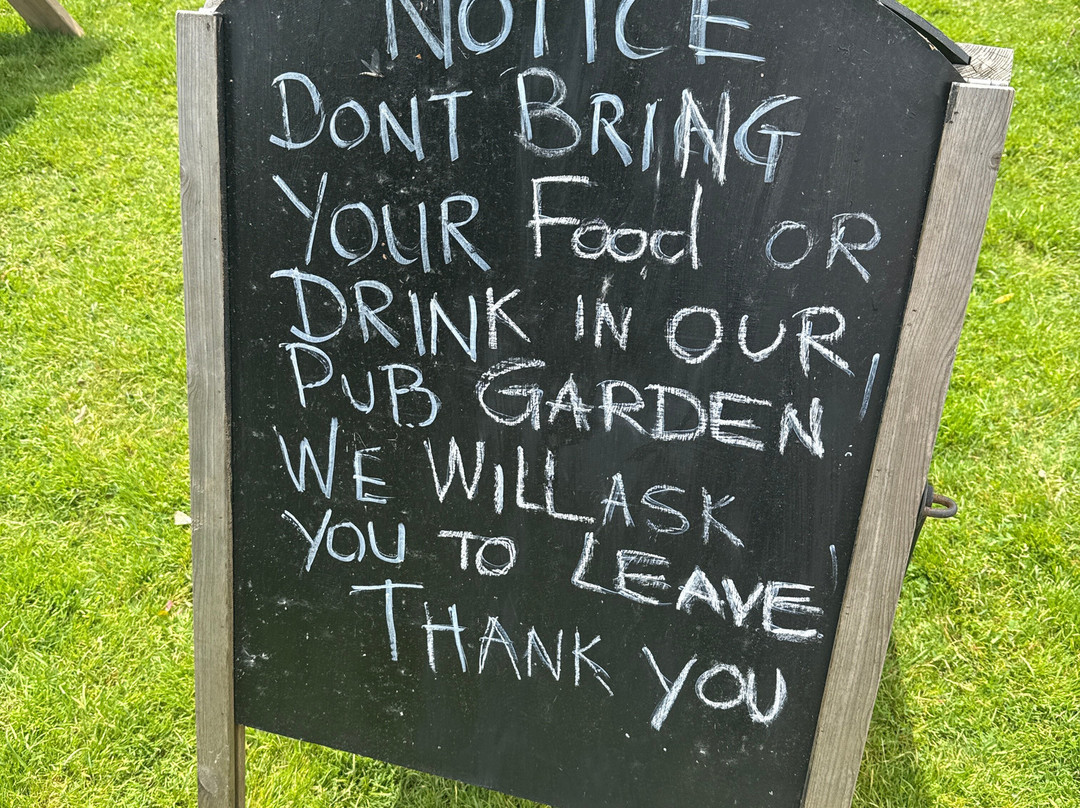 NOTICE
DONT BRING
YOUR Food OR
DRINK IN OUR
PUB GARDEN!
WE WILL ASK
YOU TO LEAVE!
THANK YOU